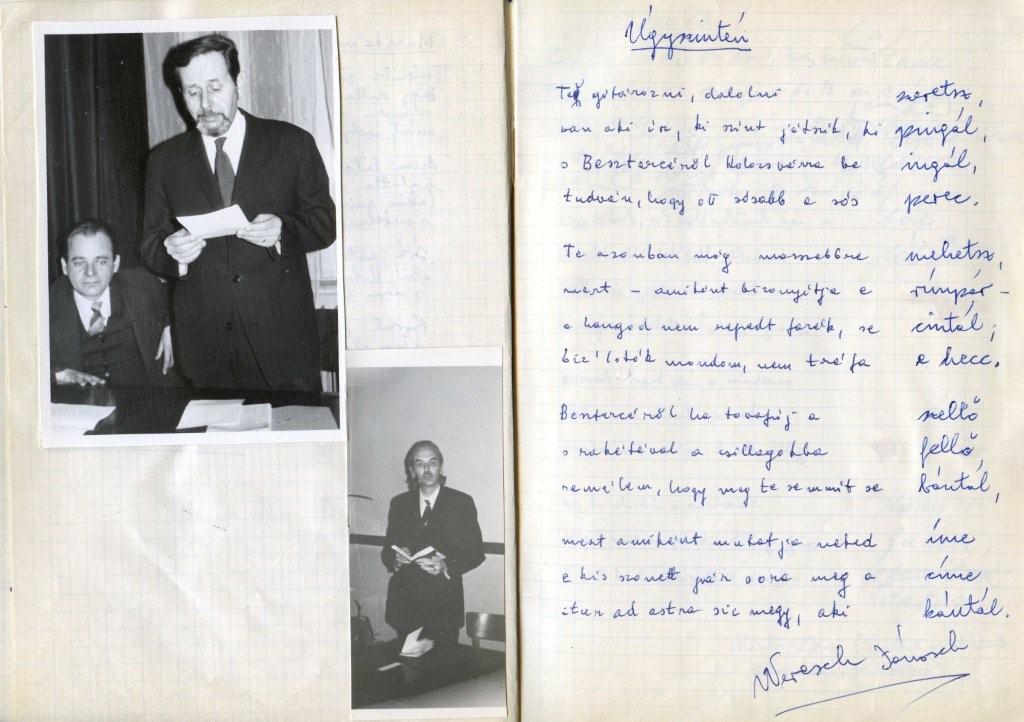 Úgyszintén
Te gitározni, dalolni szeretsz,
van aki ír, ki színt játszik, ki pingál,
s Besztercéről Kolozsvárra be ingál,
tudván, hogy ott sósabb a sós perec.
Te azonban még messzebbre mehetsz,
mert – amiként bizonyítja e rímpár –
a hangod nem repedt fazék, se cintál;
bíz'isták mondom, nem tréfa e hecc.
Besztercéről ha továfúj a szellő
s rakétával a csillagokba fellő,
remélem, hogy meg te semmit se bántál,
mert amiként mutatja neked íme
e kis szonett pár sora meg a címe
itur ad astra sic megy, aki kántál.
Weresch Jánosch